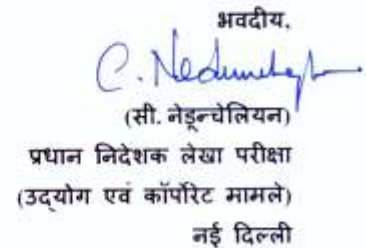 भवदीय,
C. Nedunchezhn
(सी. नेडून्चेलियन)
प्रधान निदेशक लेखा परीक्षा
(उद्योग एवं कॉर्पोरेट मामले)
नई दिल्ली